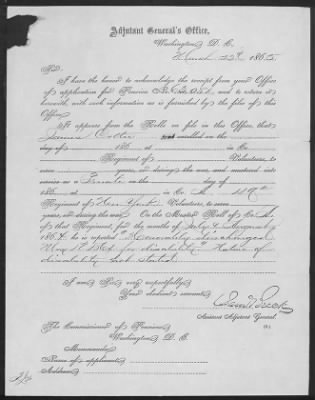 Adjutant General's Office,
Washington, D. C.
March 22d 1865.
Sir:
I have the honor to acknowledge the receipt from your Office
of application for Pension No. and to return it
herewith, with such information as is furnished by the files of this
Office.
It appears from the Rolls on file in this Office, that
James was enrolled on the
day of 186 , at in Co.
Regiment of Volunteers, to
serve years, or during the war, and mustered into
service as a Private on the day of
186 , at in Co. 119th
Regiment of New York Volunteers, to serve
years, or during the war. On the Muster Roll of Co.
of that Regiment, for the months of July & August,
1864, he is reported "Honorably discharged
for disability" Nature of
disability not stated.
I am, Sir, very respectfully,
Your obedient servant,
Assistant Adjutant General.
The Commissioner of Pensions
Washington, D. C.
Memoranda:
Name of applicant
Address